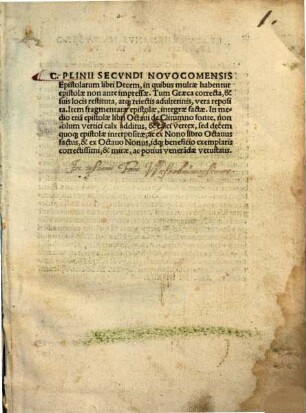 C. PLINII SECVNDI NOVOCOMENSIS
Epistolarum libri Decem, in quibus multæ habentur
epistolæ non ante impressæ. Tum Græca correcta, &
suis locis restituta, atq; reiectis adulterinis, vera reposi
ta. Item fragmentatæ epistolæ, integræ factæ. In me
dio etiã epistolæ libri Octaui de Clitumno fonte, non
solum vertici calx additus, & calci vertex, sed decem
quoq; epistolæ interpositæ, ac ex Nono libro Octauus
factus, & ex Octauo Nonus, idq; beneficio exemplaris
correctissimi, & miræ, ac potius venerãdæ vetustatis.